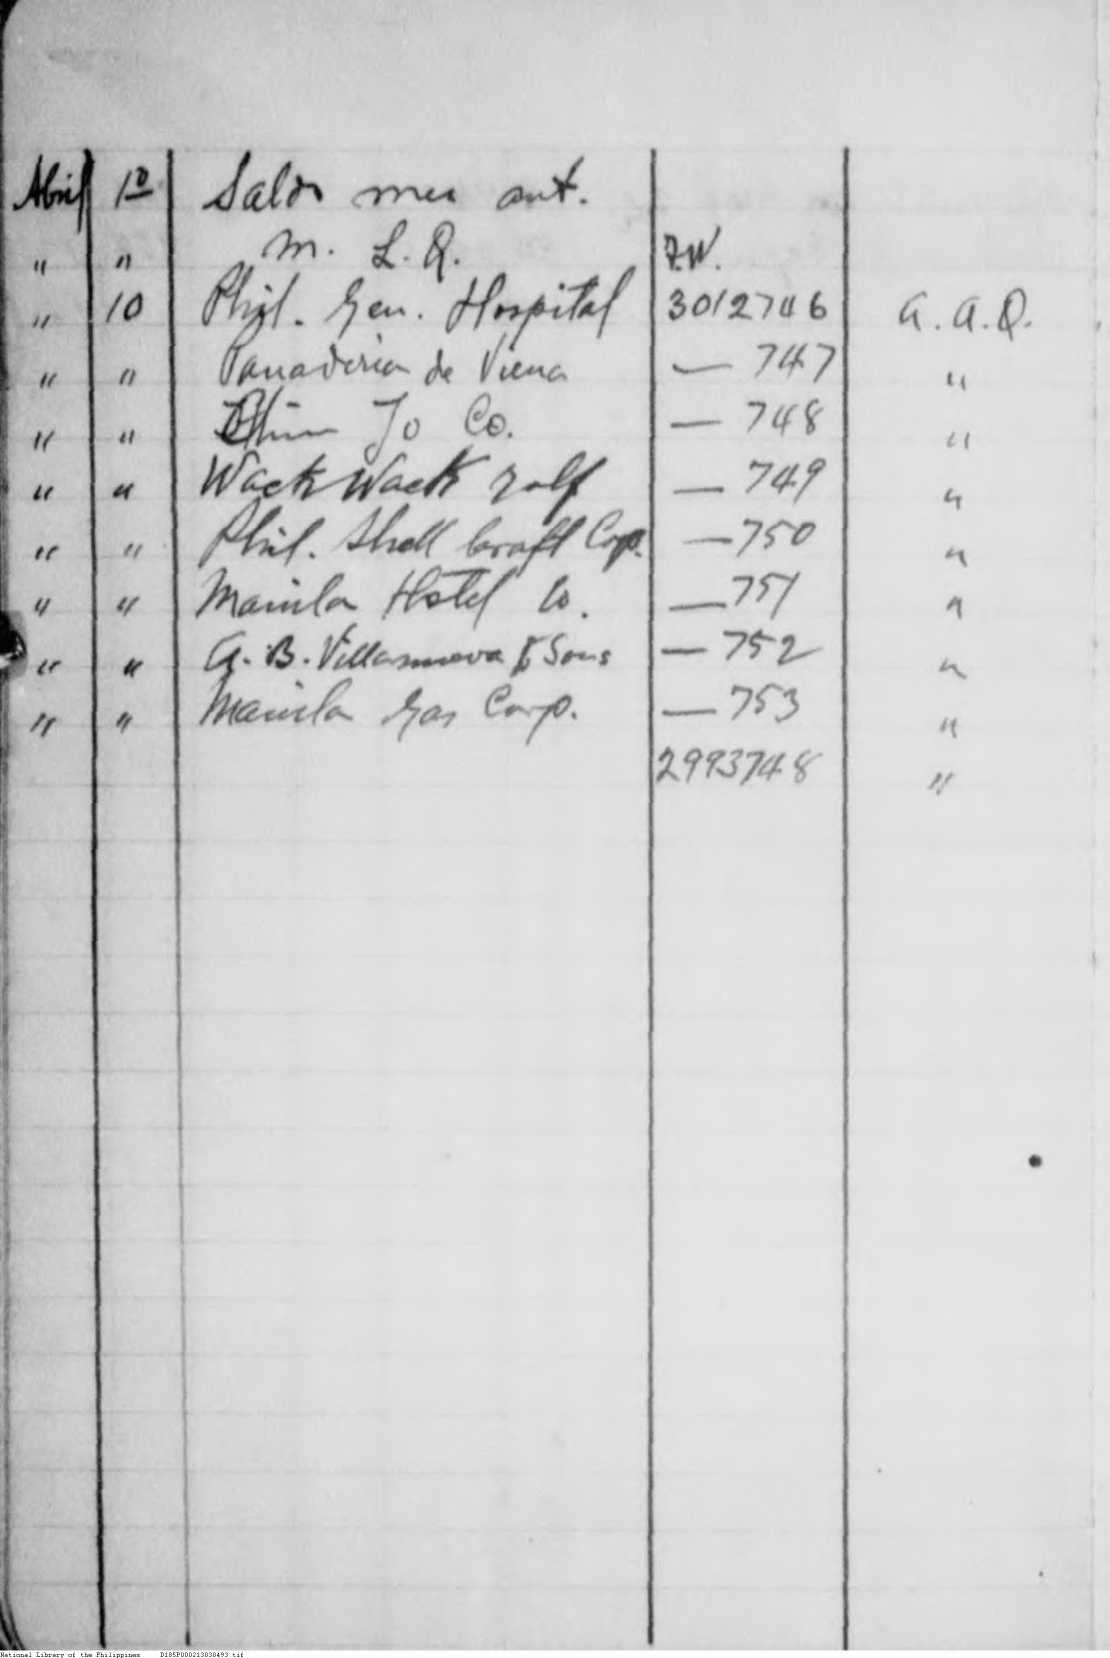 Abril 1º Saldo mes ant.
" " M. L. Q. F.W.
" 10 Phil. Gen. Hospital 3012746 A. A. Q.
" " Panaderia de Viena — 747 "
" " Jo Co. — 748 "
" " Wack Wack Golf — 749 "
" " Phil. Shell Craft Corp. — 750 "
" " Manila Hotel Co. — 751 "
" " A. B. Villanueva & Sons — 752 "
" " Manila Gas Corp. — 753 "
2993748 "
National Library of the Philippines D185P000213830493.tif